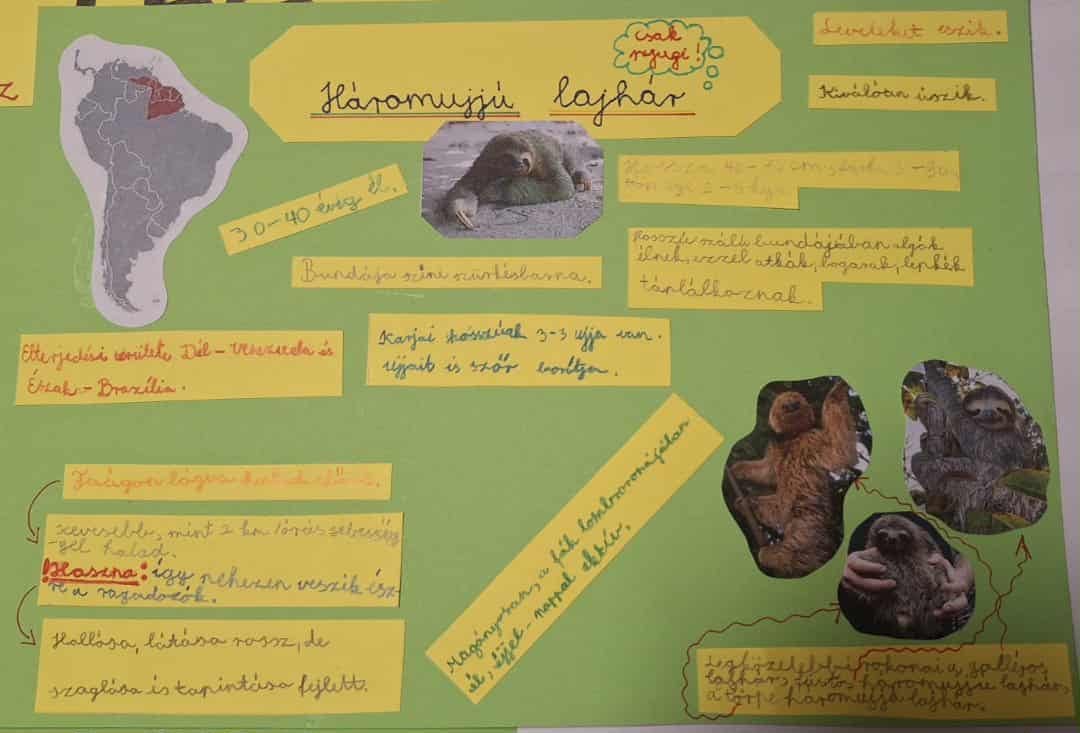 z
csak
rejugi!
Háromujjú lajhár
Leveleket eszik.
Kiválóan úszik.
30-40 évig él.
Hossza cm,
Bundája színe szürkésbarna.
Hosszú szálú bundájában algák
élnek, ezzel atkák, bogarak, lepkék
táplálkoznak.
Elterjedési területe Dél-Venezuela és
Észak-Brazília.
Karjai hosszúak 3-3 ujja van.
Ujjait is szőr borítja.
Faágon lógva
kevesebb, mint 2 km/órás sebesség
-gel halad.
!Haszna: így nehezen veszik ész-
re a ragadozók.
Hallása, látása rossz, de
szaglása és tapintása fejlett.
Magányosan, a fák lombkoronájában
él, éjjel-nappal aktív.
Legközelebbi rokonai a galléros
lajhár, háromujjú lajhár,
a törpe háromujjú lajhár.